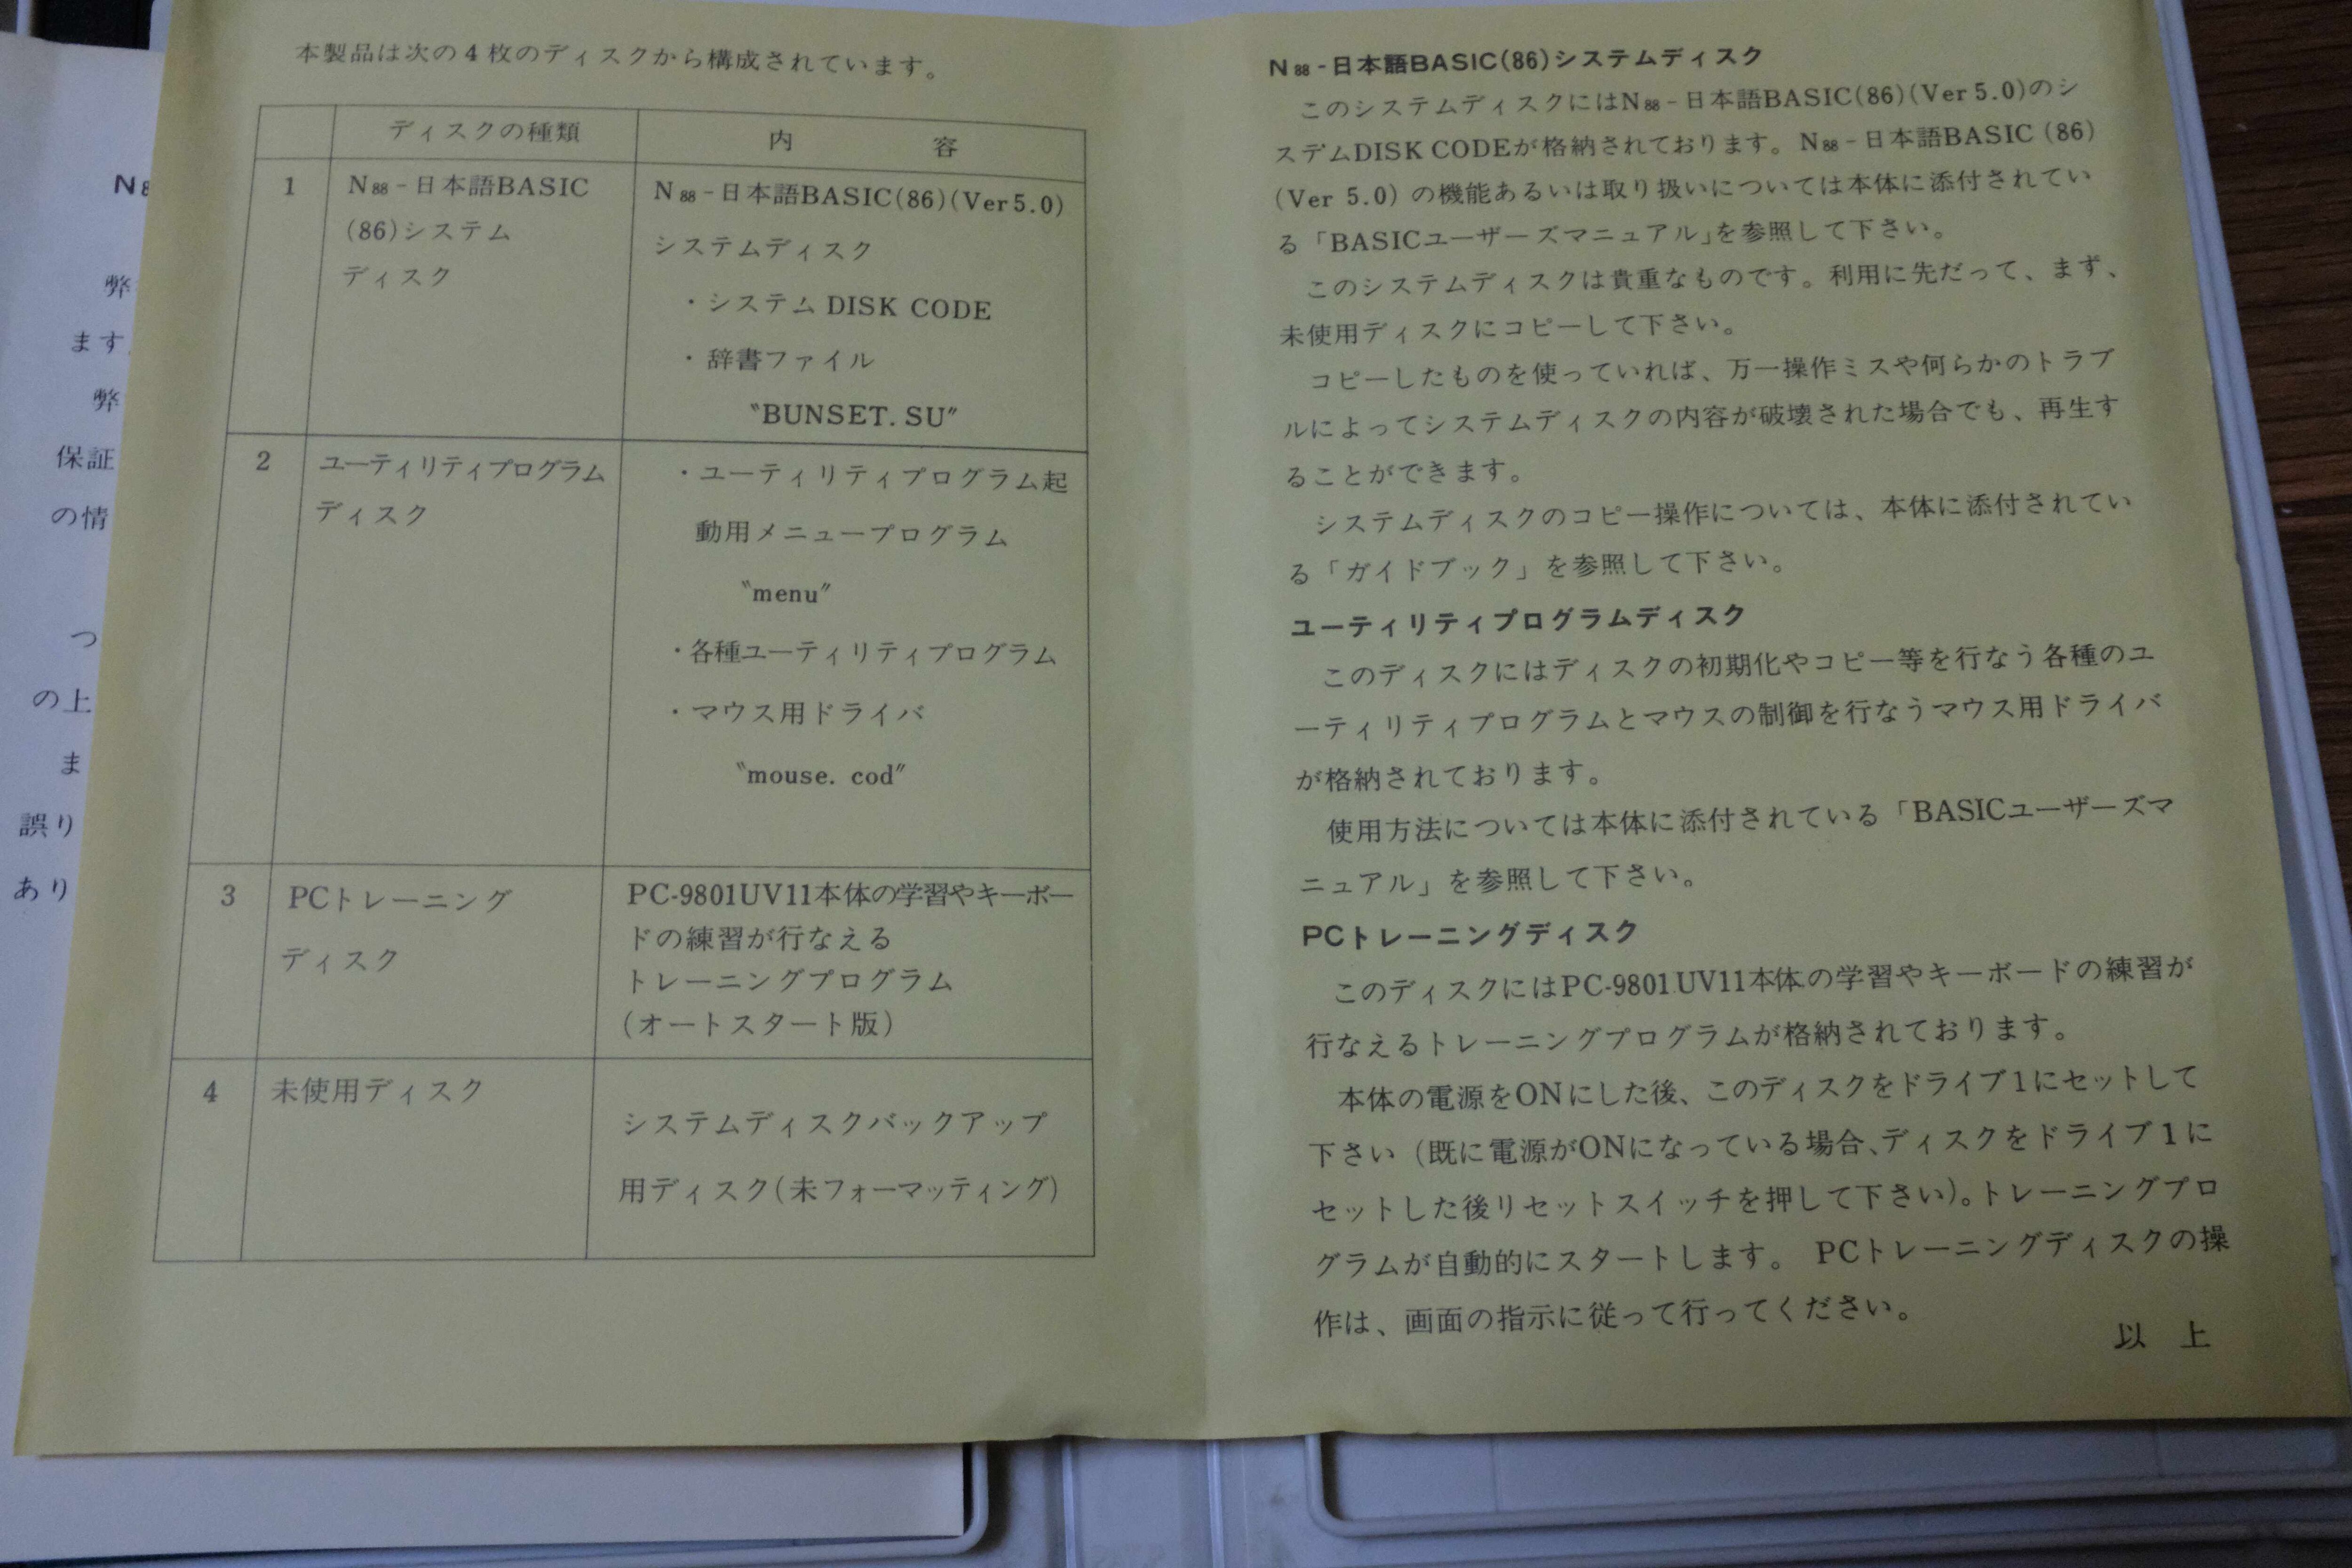 N8
弊
ます。
弊
保証
の情
つ
の上
ま
誤り
あり
本製品は次の4枚のディスクから構成されています。
ディスクの種類
内 容
1
N88-日本語BASIC
(86)システム
ディスク
N88-日本語BASIC(86)(Ver5.0)
システムディスク
・システム DISK CODE
・辞書ファイル
〝BUNSET. SU″
2
ユーティリティプログラム
ディスク
・ユーティリティプログラム起
動用メニュープログラム
〝menu″
・各種ユーティリティプログラム
・マウス用ドライバ
〝mouse. cod″
3
PCトレーニング
ディスク
PC-9801UV11本体の学習やキーボー
ドの練習が行なえる
トレーニングプログラム
(オートスタート版)
4
未使用ディスク
システムディスクバックアップ
用ディスク(未フォーマッティング)
N88-日本語BASIC(86)システムディスク
このシステムディスクにはN88-日本語BASIC(86)(Ver5.0)のシ
ステムDISK CODEが格納されております。N88-日本語BASIC (86)
(Ver 5.0) の機能あるいは取り扱いについては本体に添付されてい
る「BASICユーザーズマニュアル」を参照して下さい。
このシステムディスクは貴重なものです。利用に先だって、まず、
未使用ディスクにコピーして下さい。
コピーしたものを使っていれば、万一操作ミスや何らかのトラブ
ルによってシステムディスクの内容が破壊された場合でも、再生す
ることができます。
システムディスクのコピー操作については、本体に添付されてい
る「ガイドブック」を参照して下さい。
ユーティリティプログラムディスク
このディスクにはディスクの初期化やコピー等を行なう各種のユ
ーティリティプログラムとマウスの制御を行なうマウス用ドライバ
が格納されております。
使用方法については本体に添付されている「BASICユーザーズマ
ニュアル」を参照して下さい。
PCトレーニングディスク
このディスクにはPC-9801UV11本体の学習やキーボードの練習が
行なえるトレーニングプログラムが格納されております。
本体の電源をONにした後、このディスクをドライブ1にセットして
下さい (既に電源がONになっている場合、ディスクをドライブ1に
セットした後リセットスイッチを押して下さい)。トレーニングプロ
グラムが自動的にスタートします。 PCトレーニングディスクの操
作は、画面の指示に従って行ってください。
以 上